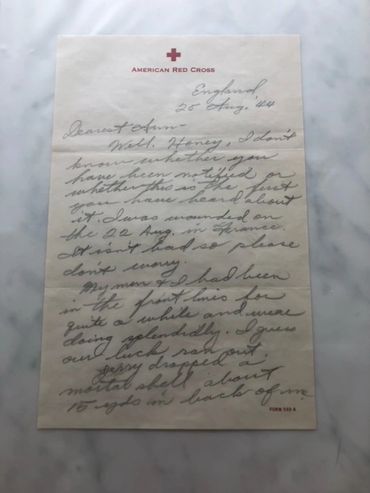 AMERICAN RED CROSS
England
25 Aug. '44
Dearest Ann-
Well, Honey, I don't
know whether you
have been notified or
whether this is the first
you have heard about
it. I was wounded on
the 22 Aug. in France.
It isn't bad so please
don't worry.
My men & I had been
in the front lines for
quite a while and were
doing splendidly. I guess
our luck ran out.
Jerry dropped a
mortar shell about
15 yds in back of me
FORM 539 A